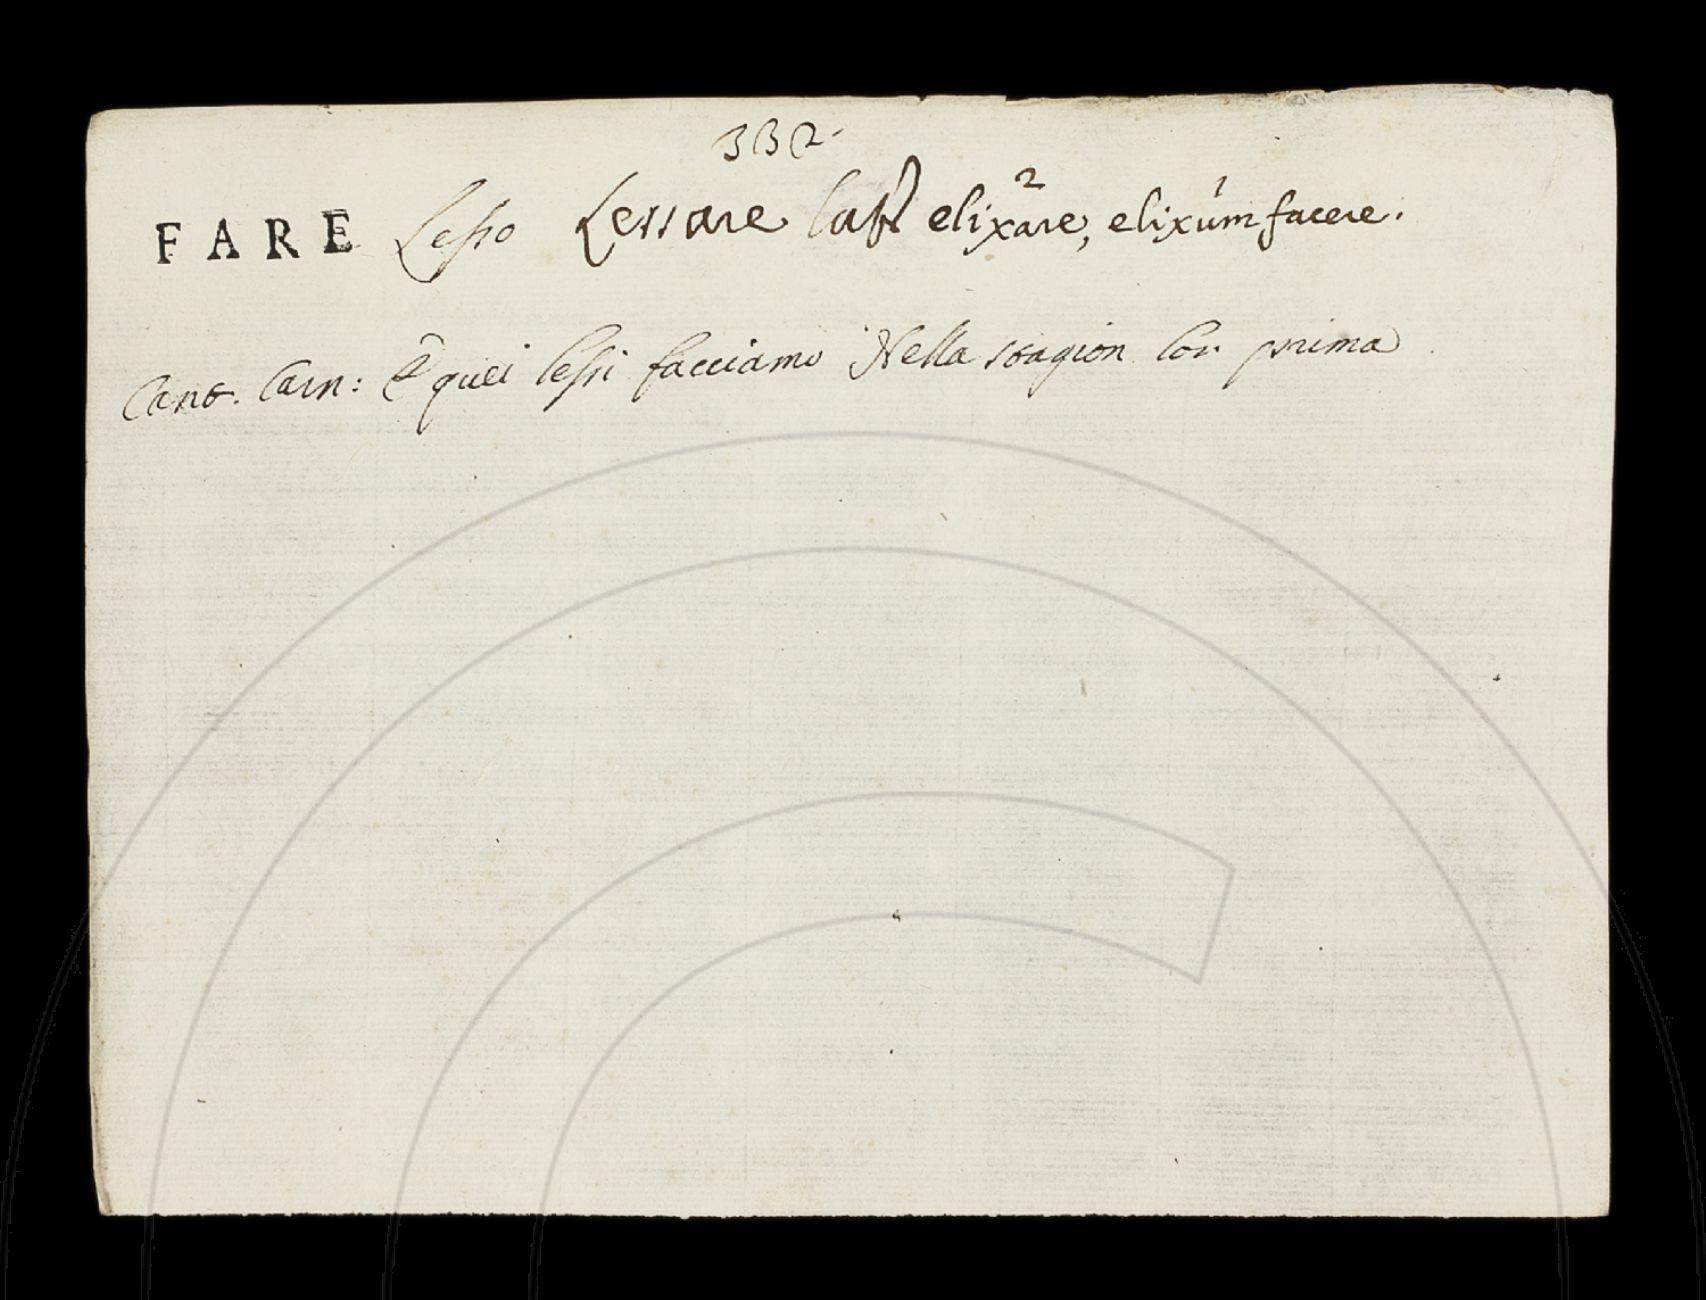 332.
FARE Lesso Lessare lat elixare, elixum facere.
2 1
Cant. Carn: E quei lessi facciamo Nella stagion lor prima